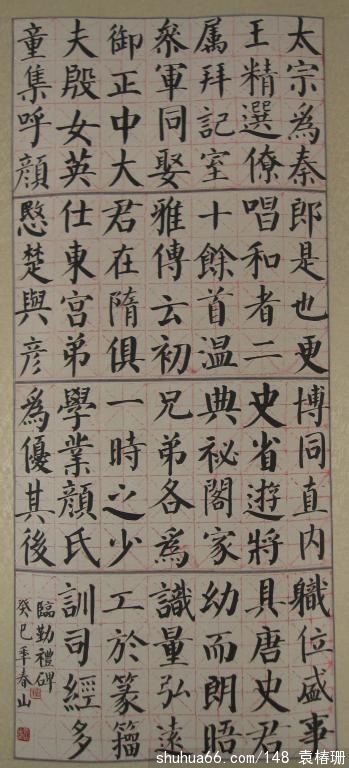 太宗為秦
王精選僚
属拜記室
叅軍同娶
御正中大
夫殷女英
童集呼顔
郎是也更
唱和者二
十餘首温
雅傳云初
君在隋俱
仕東宫弟
愍楚與彦
博同直内
史省遊将
典祕閣家
兄弟各為
一時之少
學業顔氏
為優其後
職位盛事
具唐史君
幼而朗晤
識量弘遠
工於篆籀
訓司經多
臨勤禮碑
癸巳年春山
shuhua66.com/148 袁椿珊